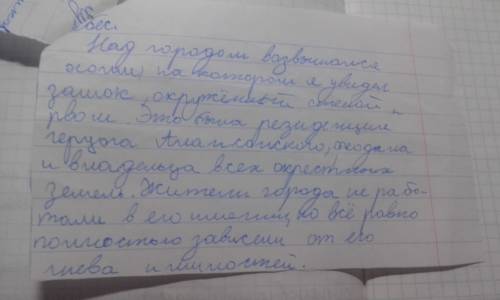 Над городом возвышался
огогий, на котором я увидел
замок окружённый стеной и
рвом. Это была резиденция
герцога Алансонского, феодала
и владельца всех окрестных
земель. Жители города не рабо-
тали в его имении, но всё равно
полностью зависели от его
гнева и милостей.